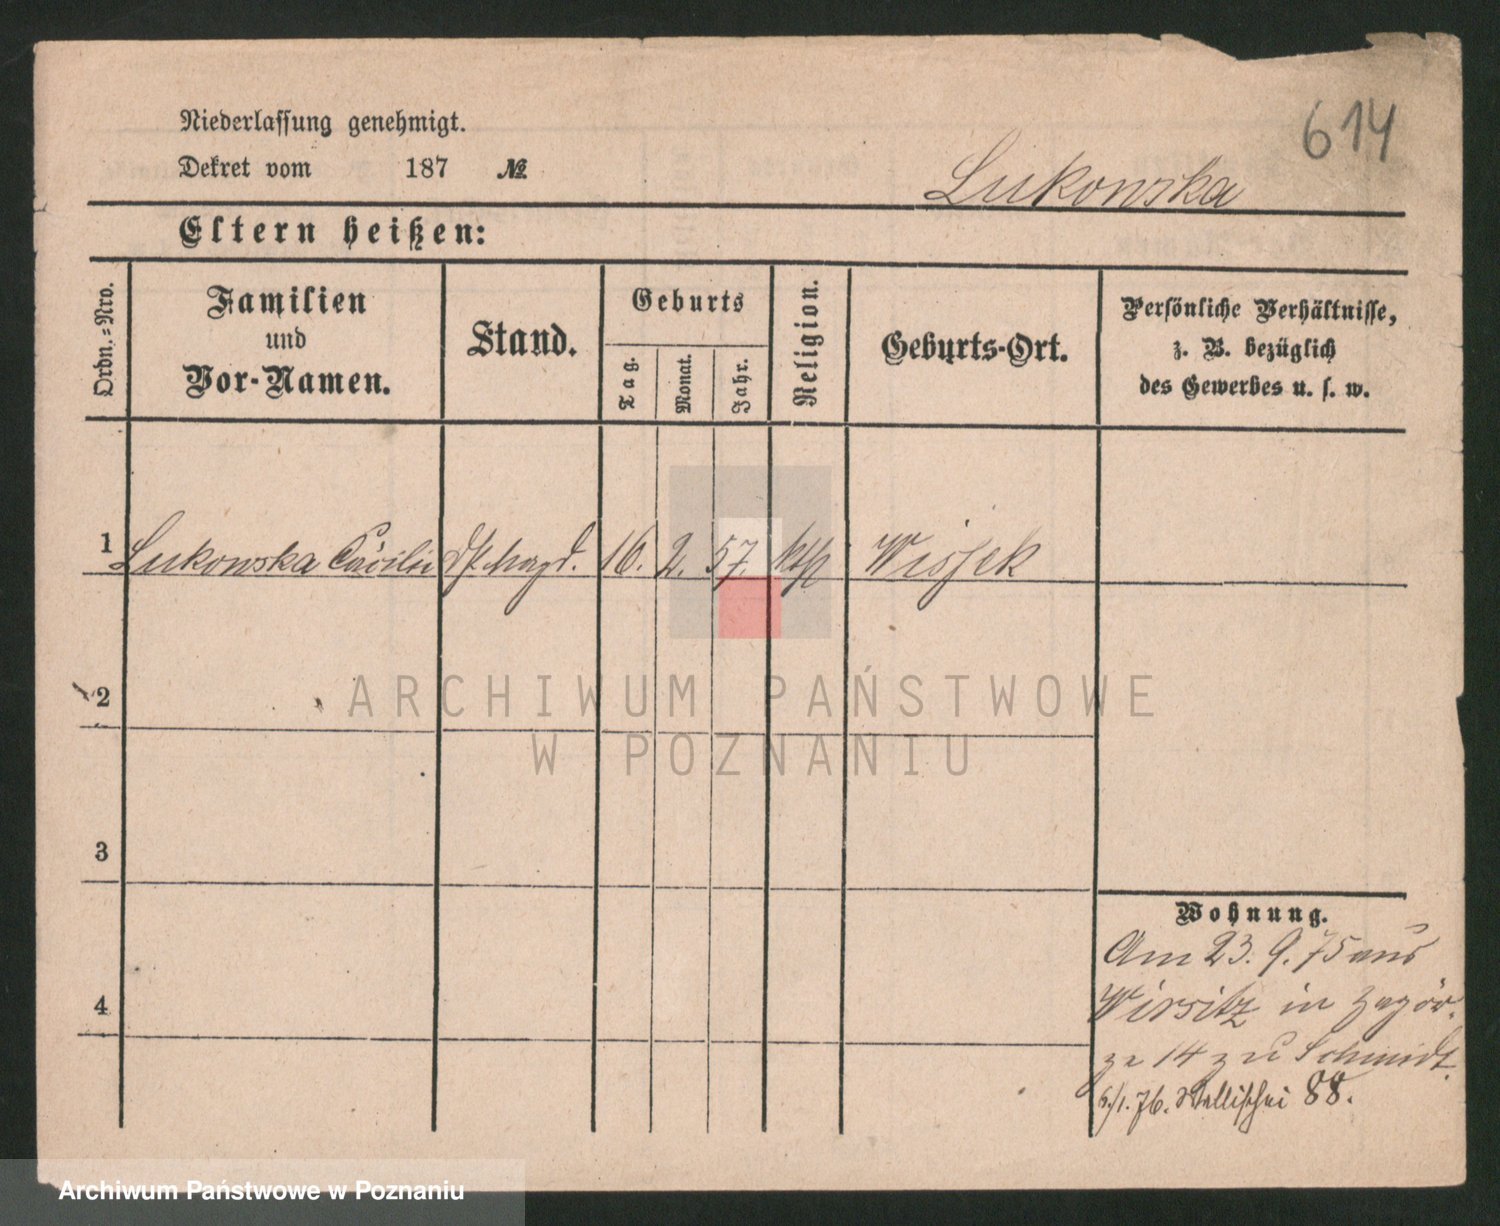 614
Niederlassung genehmigt.
Dekret vom 187 №
Lukowska
Eltern heißen:
Ordn.=Nro.
Familien
und
Vor-Namen.
Stand.
Geburts
Tag.
Monat.
Jahr.
Religion.
Geburts-Ort.
Persönliche Verhältnisse,
z. B. bezüglich
des Gewerbes u. s. w.
1 Lukowska Cäcilie 16. 2. 57. kth Wissek
2
3
4
Wohnung.
Am 23. 9. 75 aus
Wirsitz in Zagór-
ze 14 zu Schmidt.
6./1. 76. Wallischei 88.
ARCHIWUM PAŃSTWOWE
W POZNANIU
Archiwum Państwowe w Poznaniu